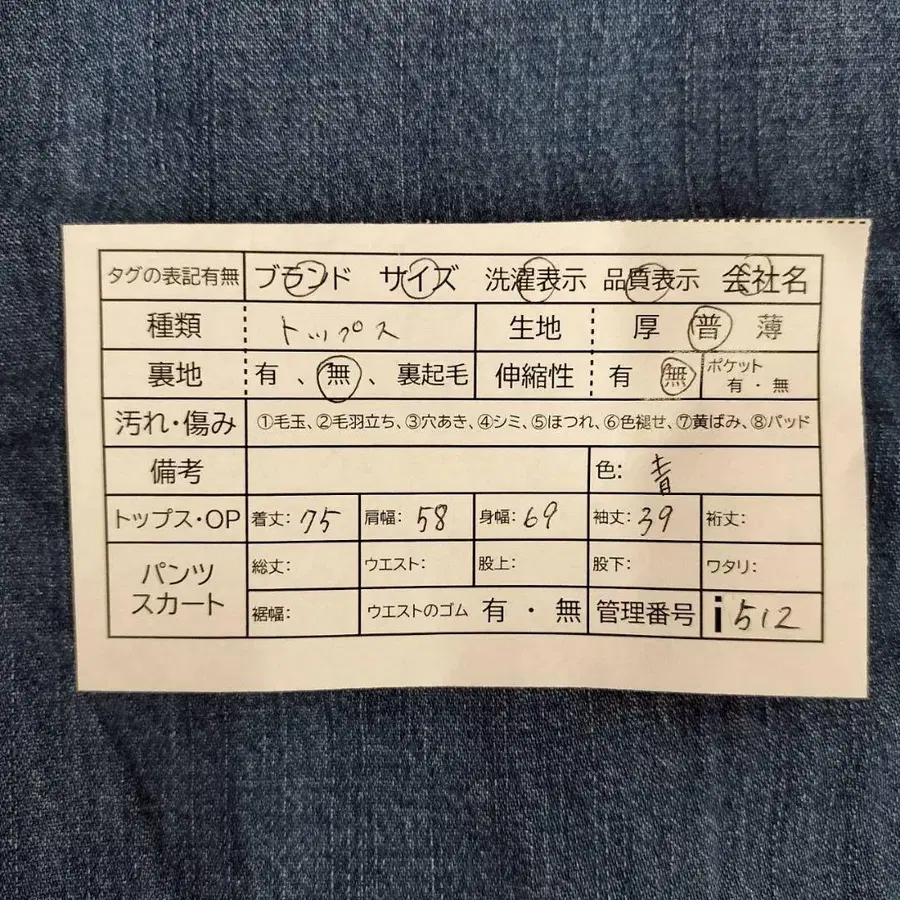 タグの表記有無 ブランド サイズ 洗濯表示 品質表示 会社名
種類 トップス 生地 厚 普 薄
裏地 有 、 無 、 裏起毛 伸縮性 有 無 ポケット 有 ・ 無
汚れ・傷み ①毛玉、②毛羽立ち、③穴あき、④シミ、⑤ほつれ、⑥色褪せ、⑦黄ばみ、⑧パッド
備考 色: 青
トップス・OP 着丈: 75 肩幅: 58 身幅: 69 袖丈: 39 裄丈:
パンツ スカート 総丈: ウエスト: 股上: 股下: ワタリ:
裾幅: ウエストのゴム 有 ・ 無 管理番号 i512